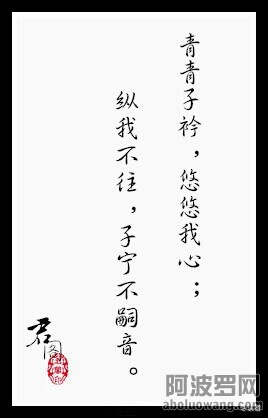 青青子衿，悠悠我心；
纵我不往，子宁不嗣音。
君
阿波罗网
aboluowang.com